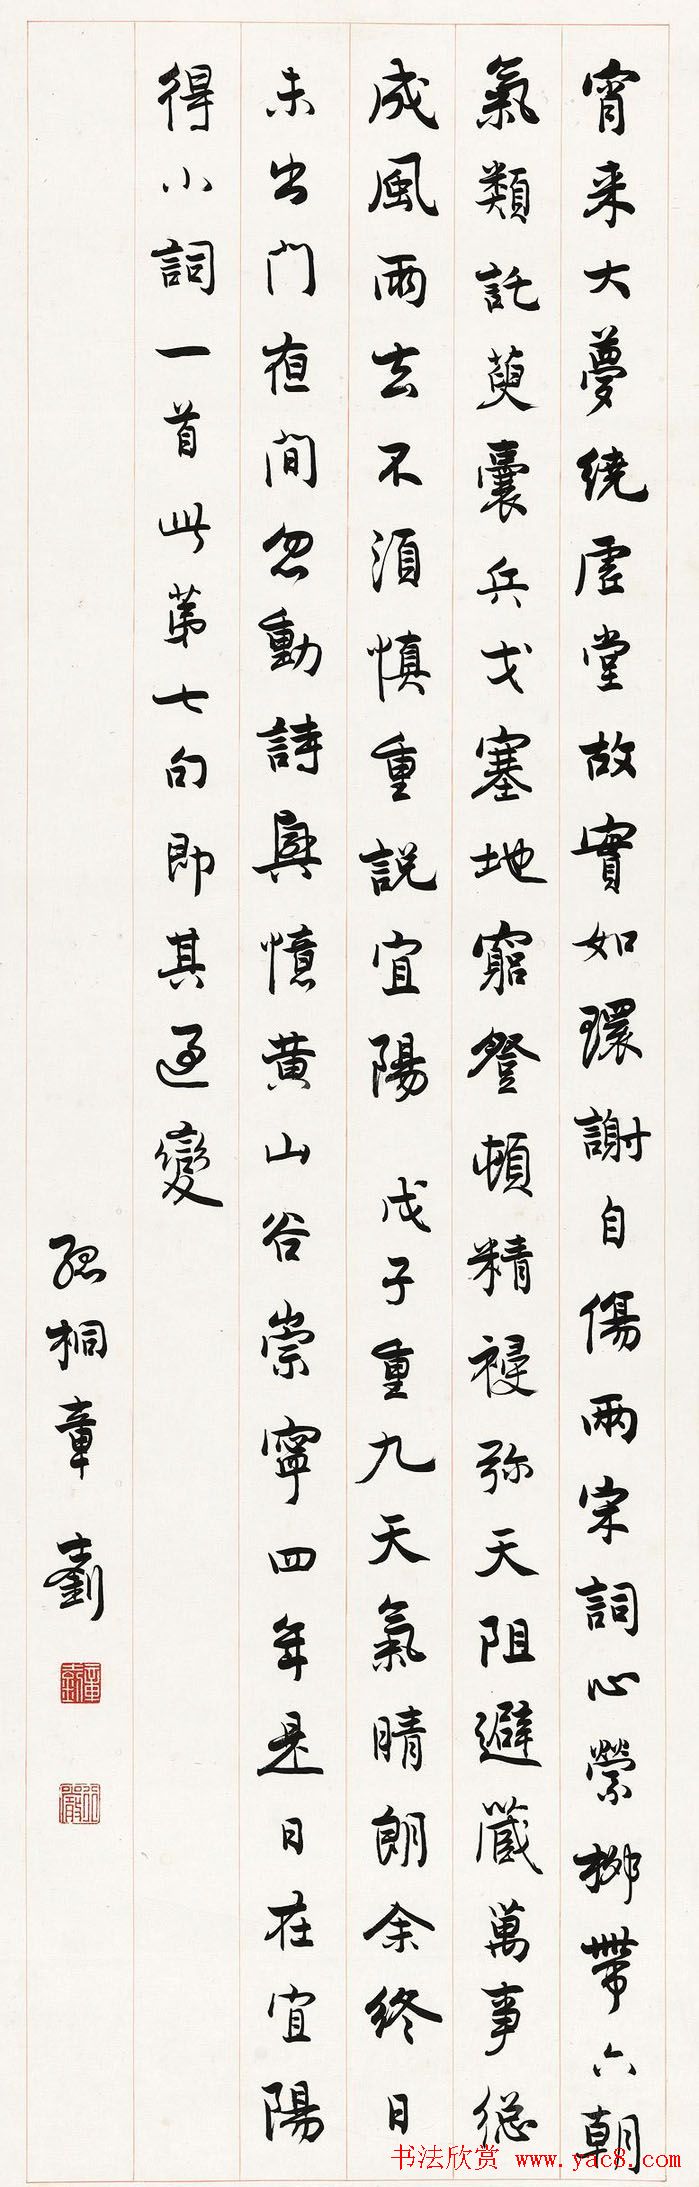 宵来大夢繞虛堂故實如環謝自傷兩宋詞心縈柳帶六朝
氣類託萸囊兵戈塞地窮登頓精祲弥天阻避藏萬事總
成風雨去不須慎重説宜陽 戊子重九天氣晴朗余終日
未出門夜間忽動詩興憶黄山谷崇寧四年是日在宜陽
得小詞一首此第七句即其通變
孤桐章士釗
書法欣赏 www.yac8.com